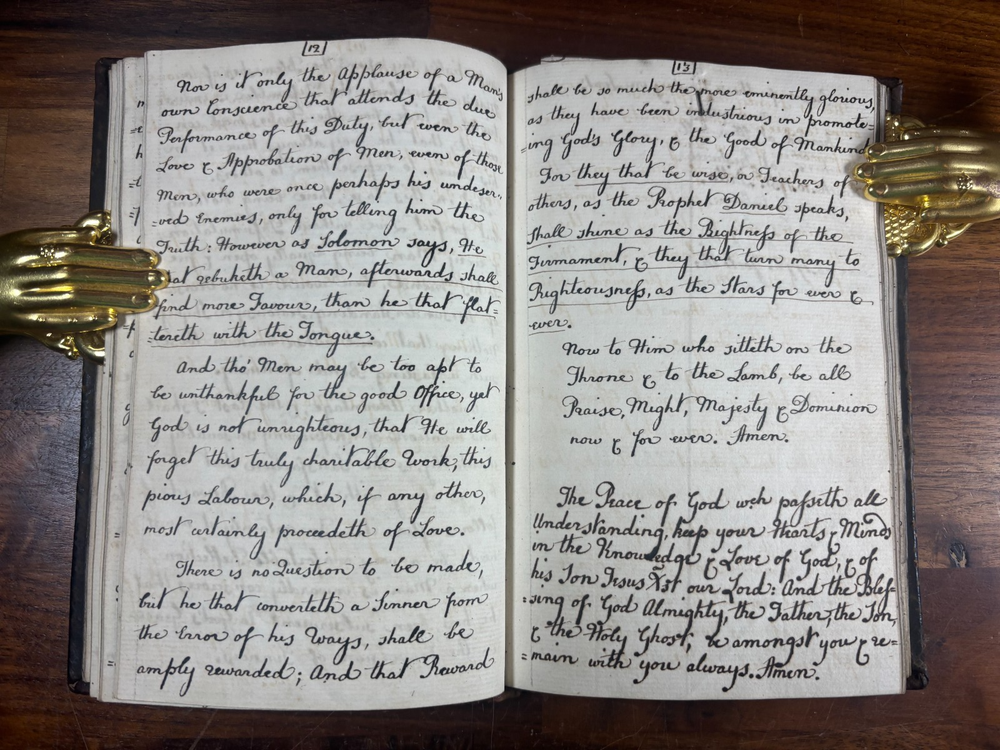 [12]
Nor is it only the Applause of a Man's
own Conscience that attends the due
Performance of this Duty, but even the
Love & Approbation of Men, even of those
Men, who were once perhaps his undeser-
=ved Enemies, only for telling him the
Truth: However as Solomon says, He
that rebuketh a Man, afterwards shall
find more Favour, than he that flat=
=tereth with the Tongue.
And tho' Men may be too apt to
be unthankful for the good Office, yet
God is not unrighteous, that He will
forget this truly charitable Work, this
pious Labour, which, if any other,
most certainly proceedeth of Love.
There is no Question to be made,
but he that converteth a Sinner from
the Error of his Ways, shall be
amply rewarded; And that Reward
[13]
shall be so much the more eminently glorious,
as they have been industrious in promote=
=ing God's Glory, & the Good of Mankind
For they that be wise, or Teachers of
others, as the Prophet Daniel speaks,
shall shine as the Brightness of the
Firmament, & they that turn many to
Righteousness, as the Stars for ever &
ever.
Now to Him who sitteth on the
Throne & to the Lamb, be all
Praise, Might, Majesty & Dominion
now & for ever. Amen.
The Peace of God wch passeth all
Understanding, keep your Hearts & Minds
in the Knowledge & Love of God, & of
his Son Jesus Xst our Lord: And the Bles=
=sing of God Almighty, the Father, the Son,
& the Holy Ghost, be amongst you & re=
=main with you always. Amen.